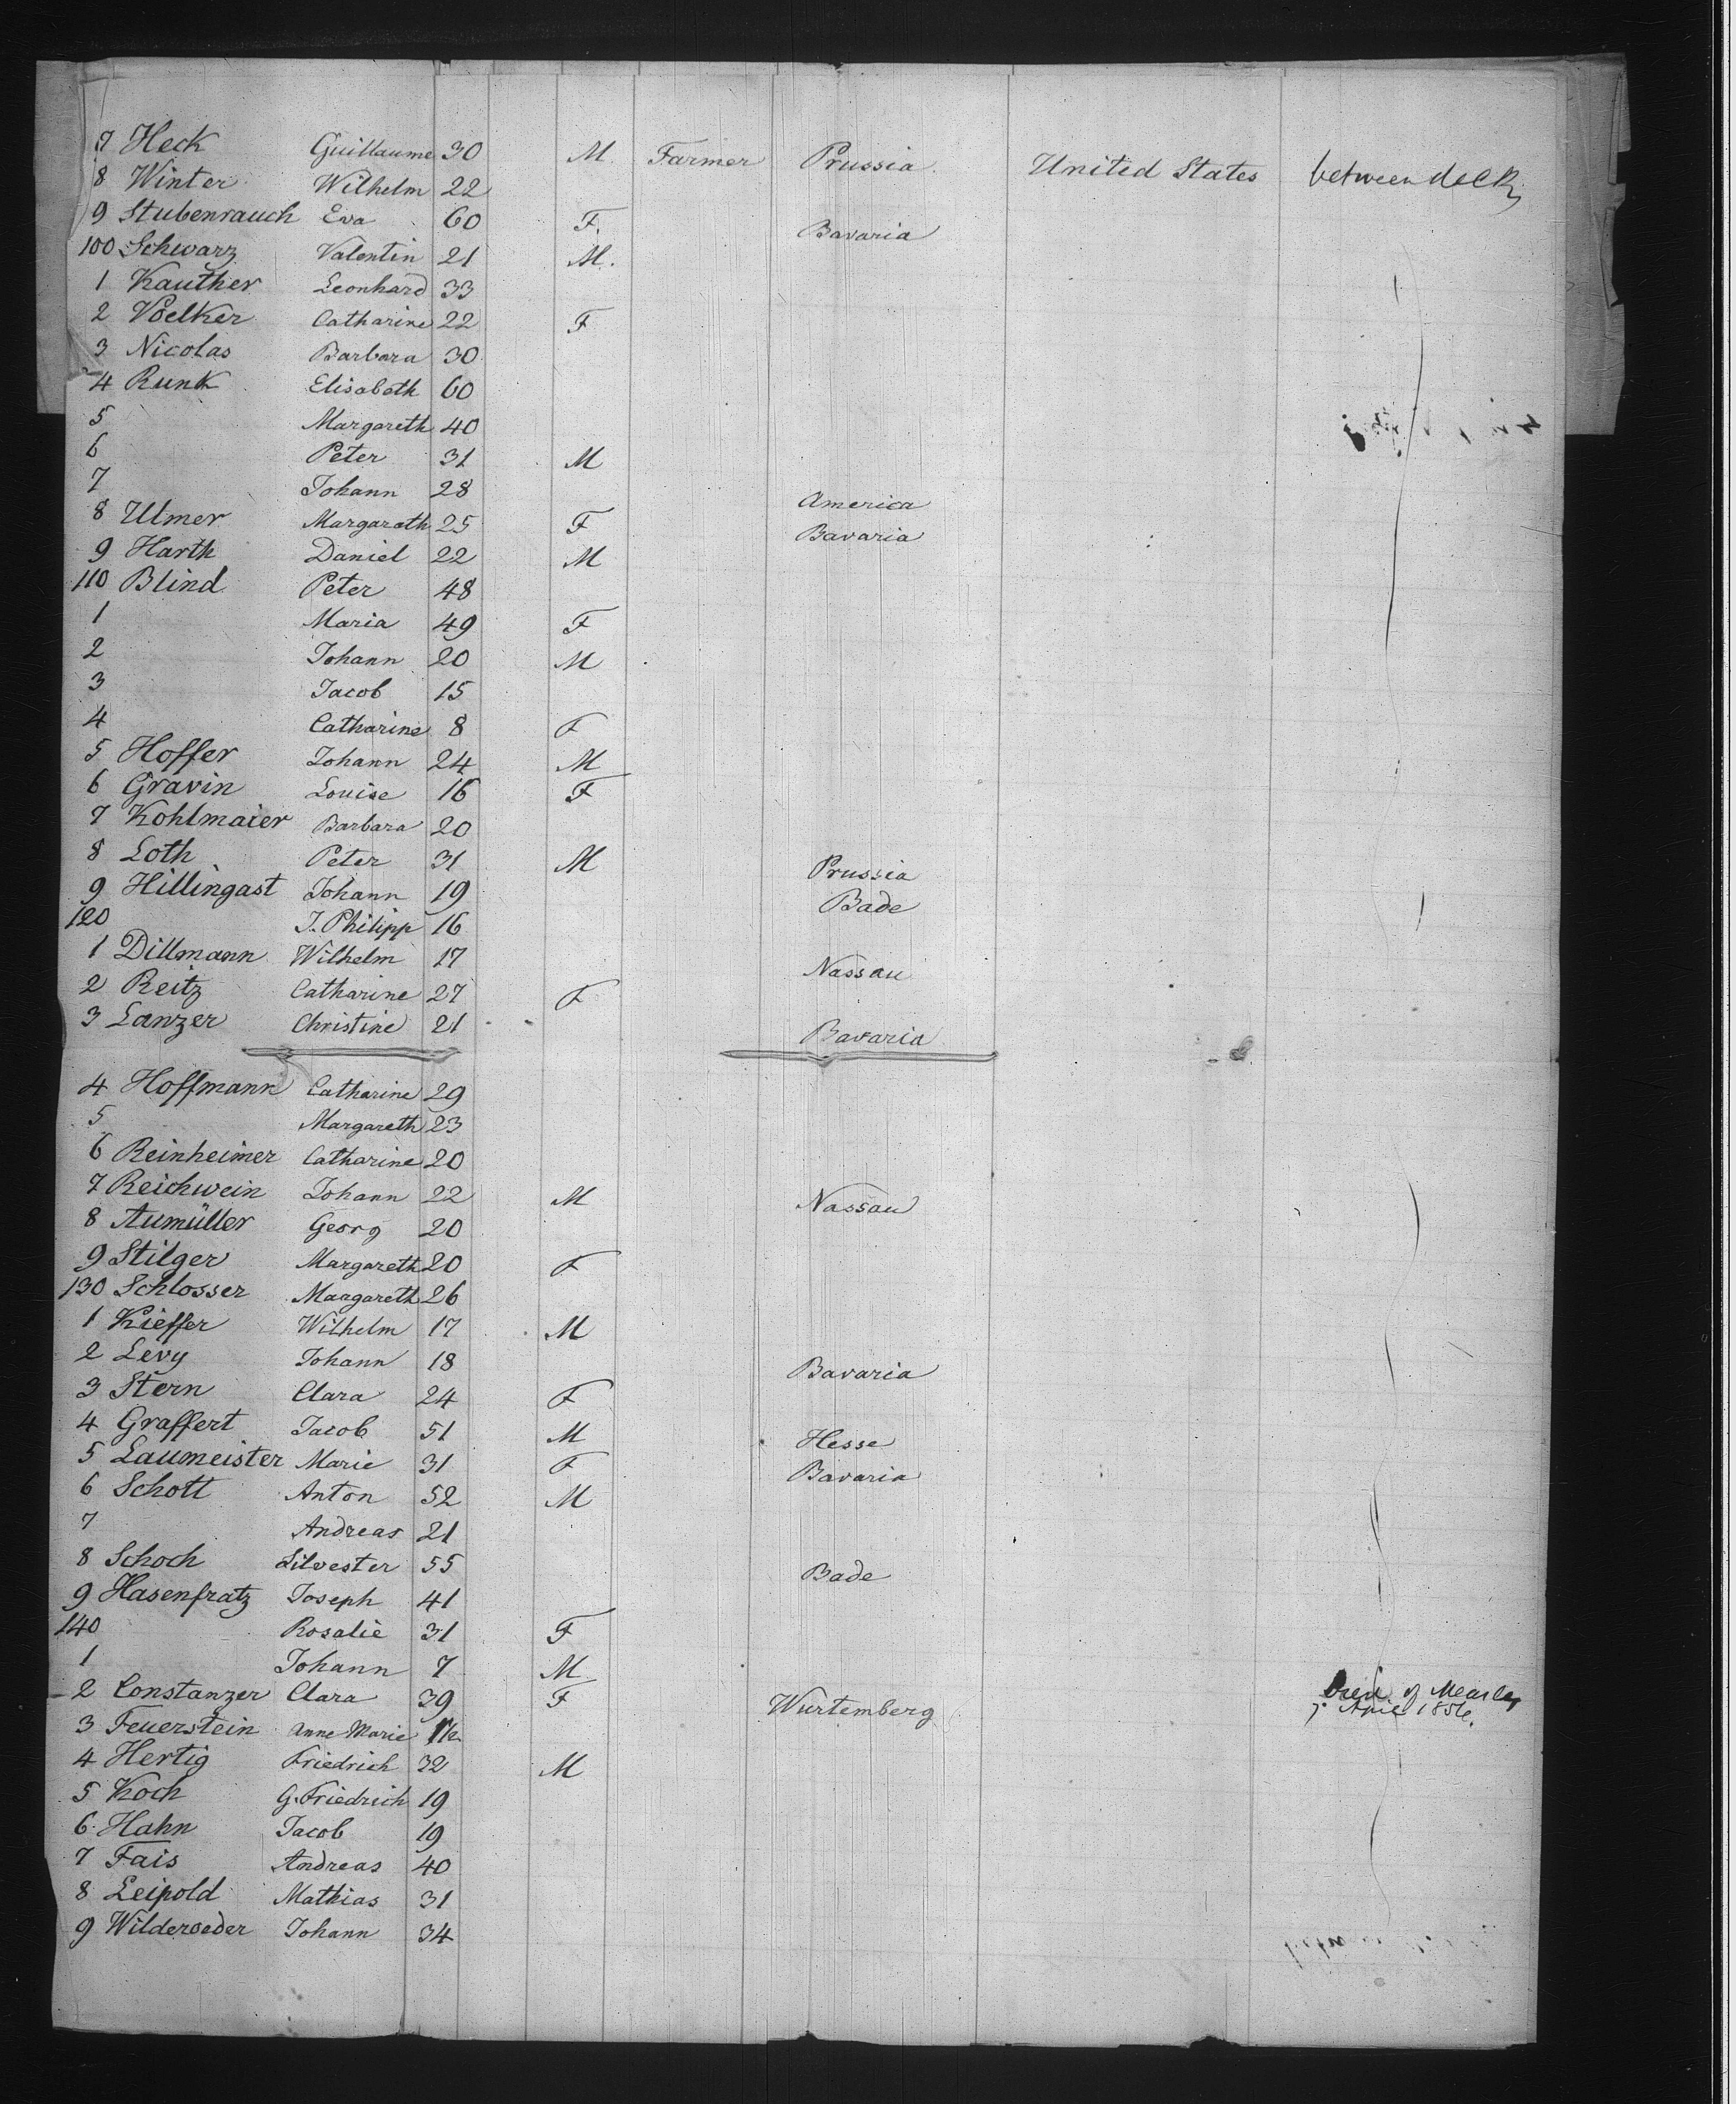 7 Heck Guillaume 30 M. Farmer Prussia United States between deck
8 Winter Wilhelm 22
9 Stubenrauch Eva 60 F. Bavaria
100 Schwarz Valentin 21 M.
1 Kauther Leonhard 33
2 Voelker Catharine 22 F
3 Nicolas Barbara 30
4 Runk Elisabeth 60
5 Margareth 40
6 Peter 31 M
7 Johann 28 America
8 Ulmer Margareth 25 F Bavaria
9 Harth Daniel 22 M
110 Blind Peter 48
1 Maria 49 F
2 Johann 20 M
3 Jacob 15
4 Catharine 8 F
5 Hoffer Johann 24 M
6 Gravin Louise 16 F
7 Kohlmaier Barbara 20
8 Loth Peter 31 M Prussia
9 Hillingast Johann 19 Bade
120 J. Philipp 16
1 Dillmann Wilhelm 17 Nassau
2 Reitz Catharine 27 F
3 Lanzer Christine 21 Bavaria
4 Hoffmann Catharine 29
5 Margareth 23
6 Reinheimer Catharine 20
7 Reichwein Johann 22 M Nassau
8 Aumüller Georg 20
9 Stilger Margareth 20 F
130 Schlosser Margareth 26
1 Kieffer Wilhelm 17 M
2 Levy Johann 18 Bavaria
3 Stern Clara 24 F
4 Graffert Jacob 51 M Hesse
5 Laumeister Marie 31 F Bavaria
6 Schott Anton 52 M
7 Andreas 21
8 Schoch Silvester 55 Bade
9 Hasenfratz Joseph 41
140 Rosalie 31 F
1 Johann 7 M
2 Constanzer Clara 39 F Wurtemberg of Measles
3 Feuerstein Anne Marie 1½ 7. April 1856.
4 Hertig Friedrich 32 M
5 Koch G. Friedrich 19
6 Hahn Jacob 19
7 Fais Andreas 40
8 Leipold Mathias 31
9 Johann 34